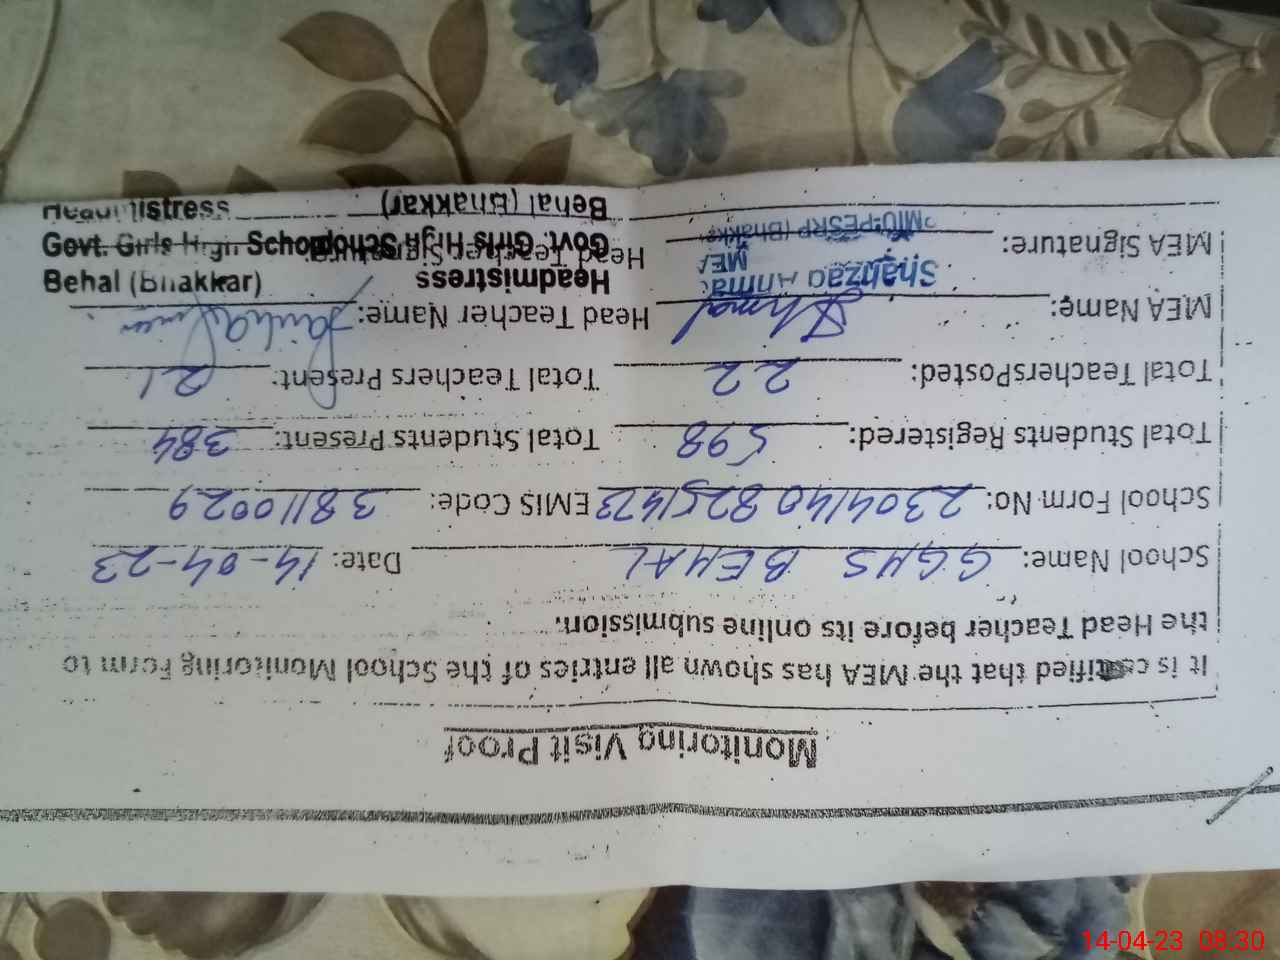 Monitoring Visit Proof
It is certified that the MEA has shown all entries of the School Monitoring Form to
the Head Teacher before its online submission.
School Name: GGHS BEHAL Date: 14-04-23
School Form No: 2304140 8251473 EMIS Code: 38110029
Total Students Registered: 598 Total Students Present: 384
Total TeachersPosted: 22 Total Teachers Present: 21
MEA Name: Ahmad Head Teacher Name:
Shahzad Ahmad
MEA
PMIU-PESRP (Bhakkar
MEA Signature: Head Teacher Signature:
Headmistress
Govt. Girls High School
Behal (Bhakkar)
Headmistress
Govt. Girls High School
Behal (Bhakkar)
14-04-23 08:30